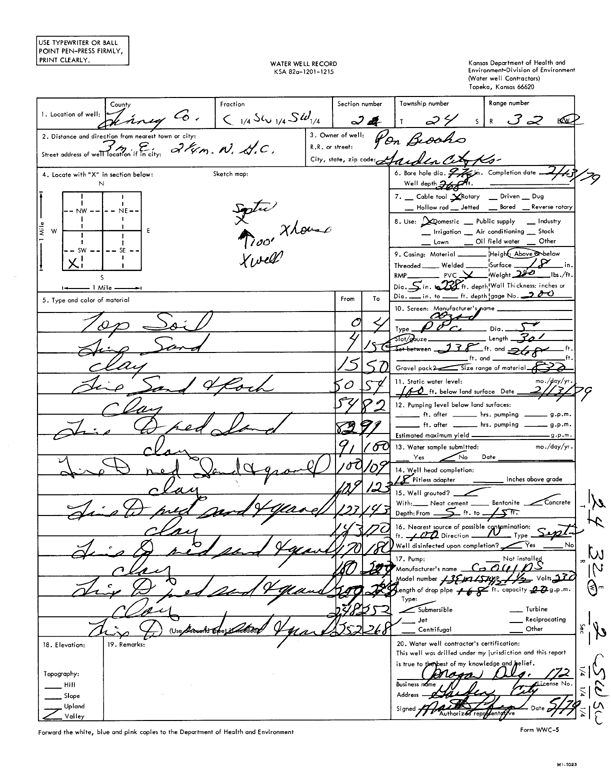 USE TYPEWRITER OR BALL
POINT PEN-PRESS FIRMLY,
PRINT CLEARLY.
WATER WELL RECORD
KSA 82a-1201-1215
Kansas Department of Health and
Environment-Division of Environment
(Water well Contractors)
Topeka, Kansas 66620
1. Location of well: County Finney Co. Fraction C 1/4 SW 1/4 SW 1/4 Section number 2 Township number T 24 S Range number R 32
2. Distance and direction from nearest town or city: 3 m. E. 2 1/4 m. N. G.C.
Street address of well location if in city:
3. Owner of well: Ron Brooks
R.R. or street:
City, state, zip code: Garden City Ks.
4. Locate with "X" in section below:
N
NW NE
W E
SW SE
X
S
1 Mile
1 Mile
Sketch map:
Septic
X
100' X house
X well
6. Bore hole dia. in. Completion date 2/13/79
Well depth 268 ft.
7. Cable tool X Rotary Driven Dug
Hollow rod Jetted Bored Reverse rotary
8. Use: X Domestic Public supply Industry
Irrigation Air conditioning Stock
Lawn Oil field water Other
9. Casing: Material Height: Above or below
Threaded Welded Surface 18 in.
RMP PVC X Weight 200 lbs./ft.
Dia. 5 in. to 238 ft. depth Wall Thickness: inches or
Dia. in. to ft. depth gage No. 200
10. Screen: Manufacturer's name
Type PVC Dia. 5"
Slot/gauze Length 30'
Set between 238 ft. and 268 ft.
ft. and ft.
Gravel pack? Size range of material
11. Static water level: mo./day/yr.
160 ft. below land surface Date 2/13/79
12. Pumping level below land surfaces:
ft. after hrs. pumping g.p.m.
ft. after hrs. pumping g.p.m.
Estimated maximum yield g.p.m.
13. Water sample submitted: mo./day/yr.
Yes No Date
14. Well head completion:
18 Pitless adapter Inches above grade
15. Well grouted?
With: Neat cement Bentonite Concrete
Depth: From 5 ft. to 15 ft.
16. Nearest source of possible contamination:
ft. 100 Direction N Type Septic
Well disinfected upon completion? Yes No
17. Pump: Not installed
Manufacturer's name Goulds
Model number HP 1 1/2 Volts 230
Length of drop pipe 168 ft. capacity 20 g.p.m.
Type:
Submersible Turbine
Jet Reciprocating
Centrifugal Other
5. Type and color of material From To
Top Soil 0 4
Fine Sand 4 15
clay 15 50
Fine Sand & Rock 50 54
clay 54 82
Fine D med Sand 82 91
clay 91 100
Fine D med Sand & gravel 100 109
clay 109 123
Fine D med sand & gravel 123 143
clay 143 170
Fine D med sand & gravel 170 180
clay 180 200
Fine D med sand & gravel 200
clay 252
Fine D med sand & gravel 252 268
18. Elevation:
Topography:
Hill
Slope
Upland
Valley
19. Remarks:
20. Water well contractor's certification:
This well was drilled under my jurisdiction and this report
is true to the best of my knowledge and belief.
Dlg. 172
Business name License No.
Address Garden City
Signed Date 5/79
Authorized representative
T 24 R 32 W Sec 2 1/4 SW 1/4 SW 1/4
Forward the white, blue and pink copies to the Department of Health and Environment Form WWC-5